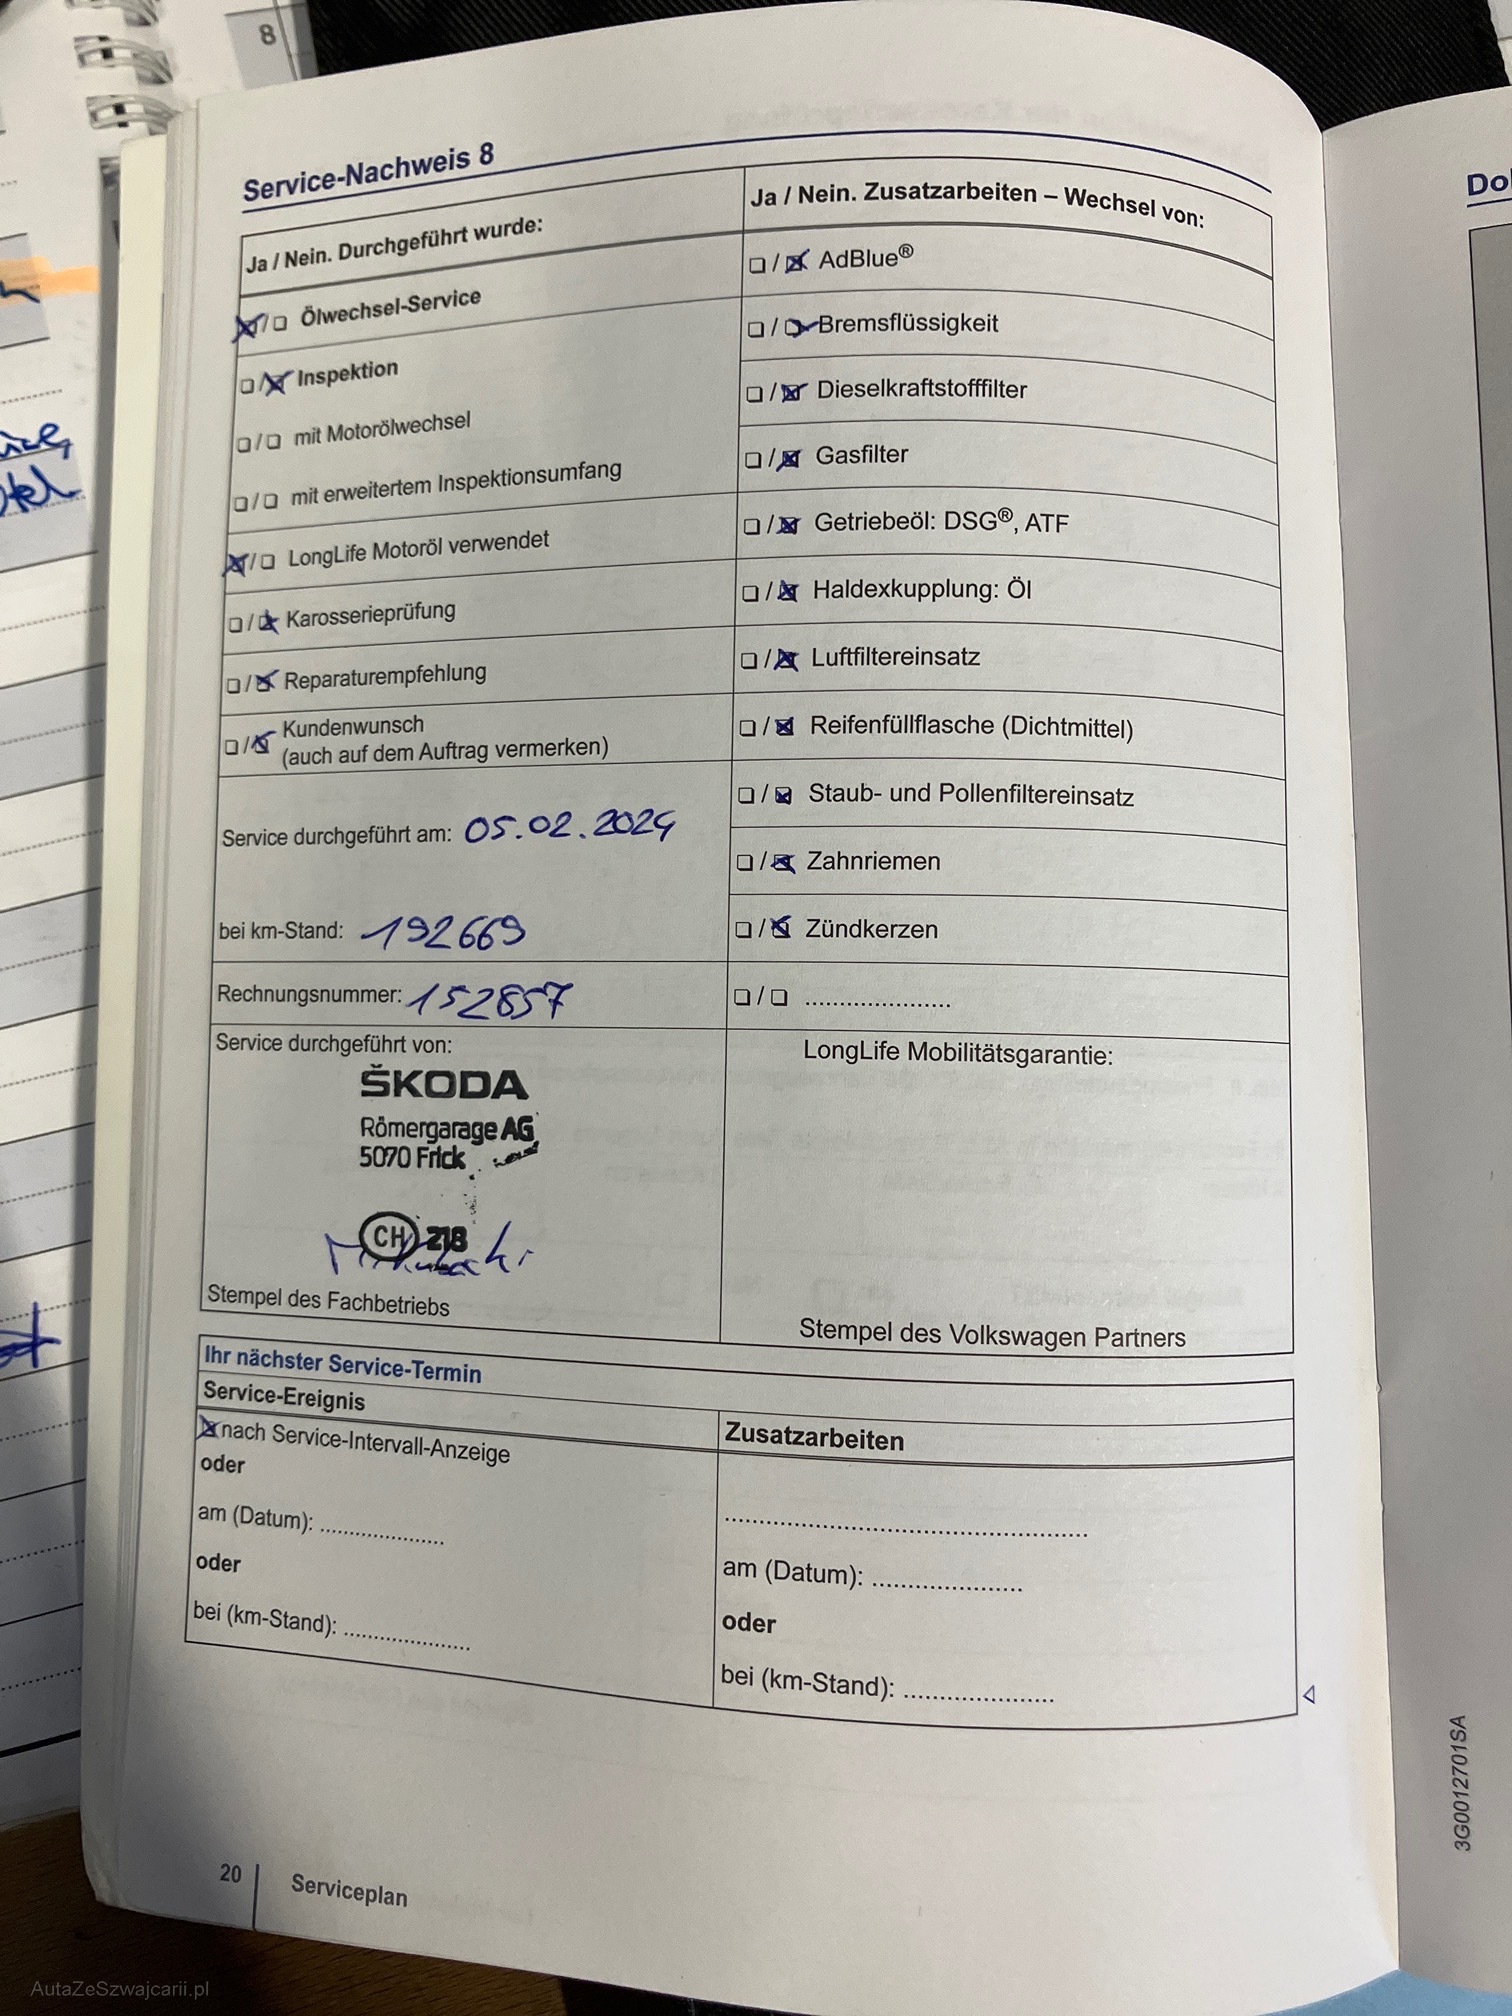 8
Service-Nachweis 8
Ja / Nein. Durchgeführt wurde:
☒/❏ Ölwechsel-Service
❏/☒ Inspektion
❏/❏ mit Motorölwechsel
❏/❏ mit erweitertem Inspektionsumfang
☒/❏ LongLife Motoröl verwendet
❏/☒ Karosserieprüfung
❏/☒ Reparaturempfehlung
❏/☒ Kundenwunsch
(auch auf dem Auftrag vermerken)
Service durchgeführt am: 05.02.2024
bei km-Stand: 192669
Rechnungsnummer: 152857
Service durchgeführt von:
ŠKODA
Römergarage AG
5070 Frick
CH 218
Stempel des Fachbetriebs
Ja / Nein. Zusatzarbeiten – Wechsel von:
❏/☒ AdBlue®
❏/☒ Bremsflüssigkeit
❏/☒ Dieselkraftstofffilter
❏/☒ Gasfilter
❏/☒ Getriebeöl: DSG®, ATF
❏/☒ Haldexkupplung: Öl
❏/☒ Luftfiltereinsatz
❏/☒ Reifenfüllflasche (Dichtmittel)
❏/☒ Staub- und Pollenfiltereinsatz
❏/☒ Zahnriemen
❏/☒ Zündkerzen
❏/❏ .....................
LongLife Mobilitätsgarantie:
Stempel des Volkswagen Partners
Ihr nächster Service-Termin
Service-Ereignis
☒ nach Service-Intervall-Anzeige
oder
am (Datum): ..................
oder
bei (km-Stand): ..................
Zusatzarbeiten
....................................................
am (Datum): .....................
oder
bei (km-Stand): .....................
20
Serviceplan
3G0012701SA
AutaZeSzwajcarii.pl